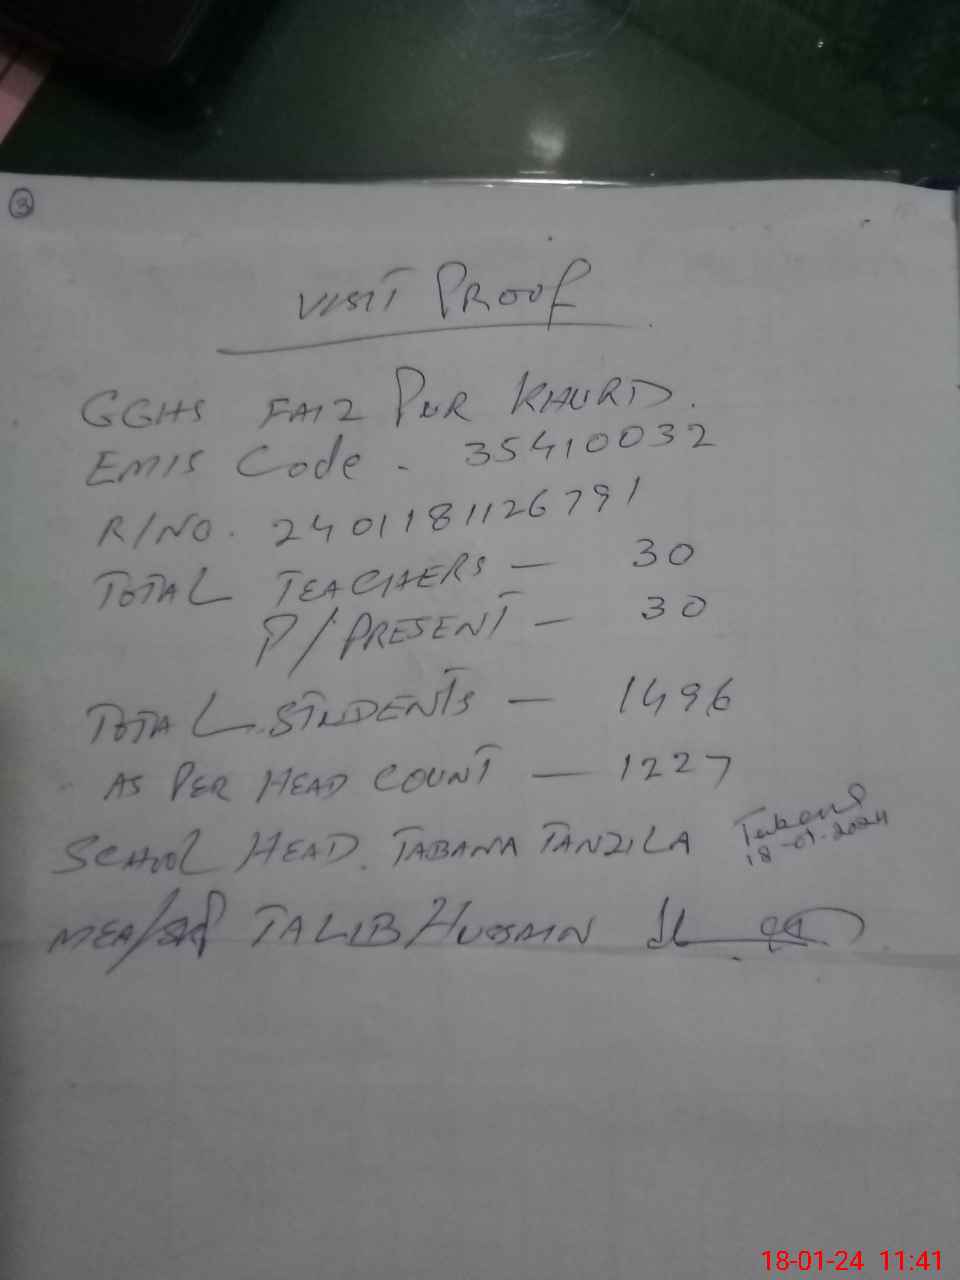 3
VISIT PROOF
GGHS FAIZ PUR KHURD.
EMIS Code - 35410032
R/NO. 2401181126791
TOTAL TEACHERS — 30
P/PRESENT — 30
TOTAL STUDENTS — 1496
AS PER HEAD COUNT — 1227
SCHOOL HEAD. TABANA TANZILA
18-01-2024
MEA/ TALIB HUSSAIN
18-01-24 11:41